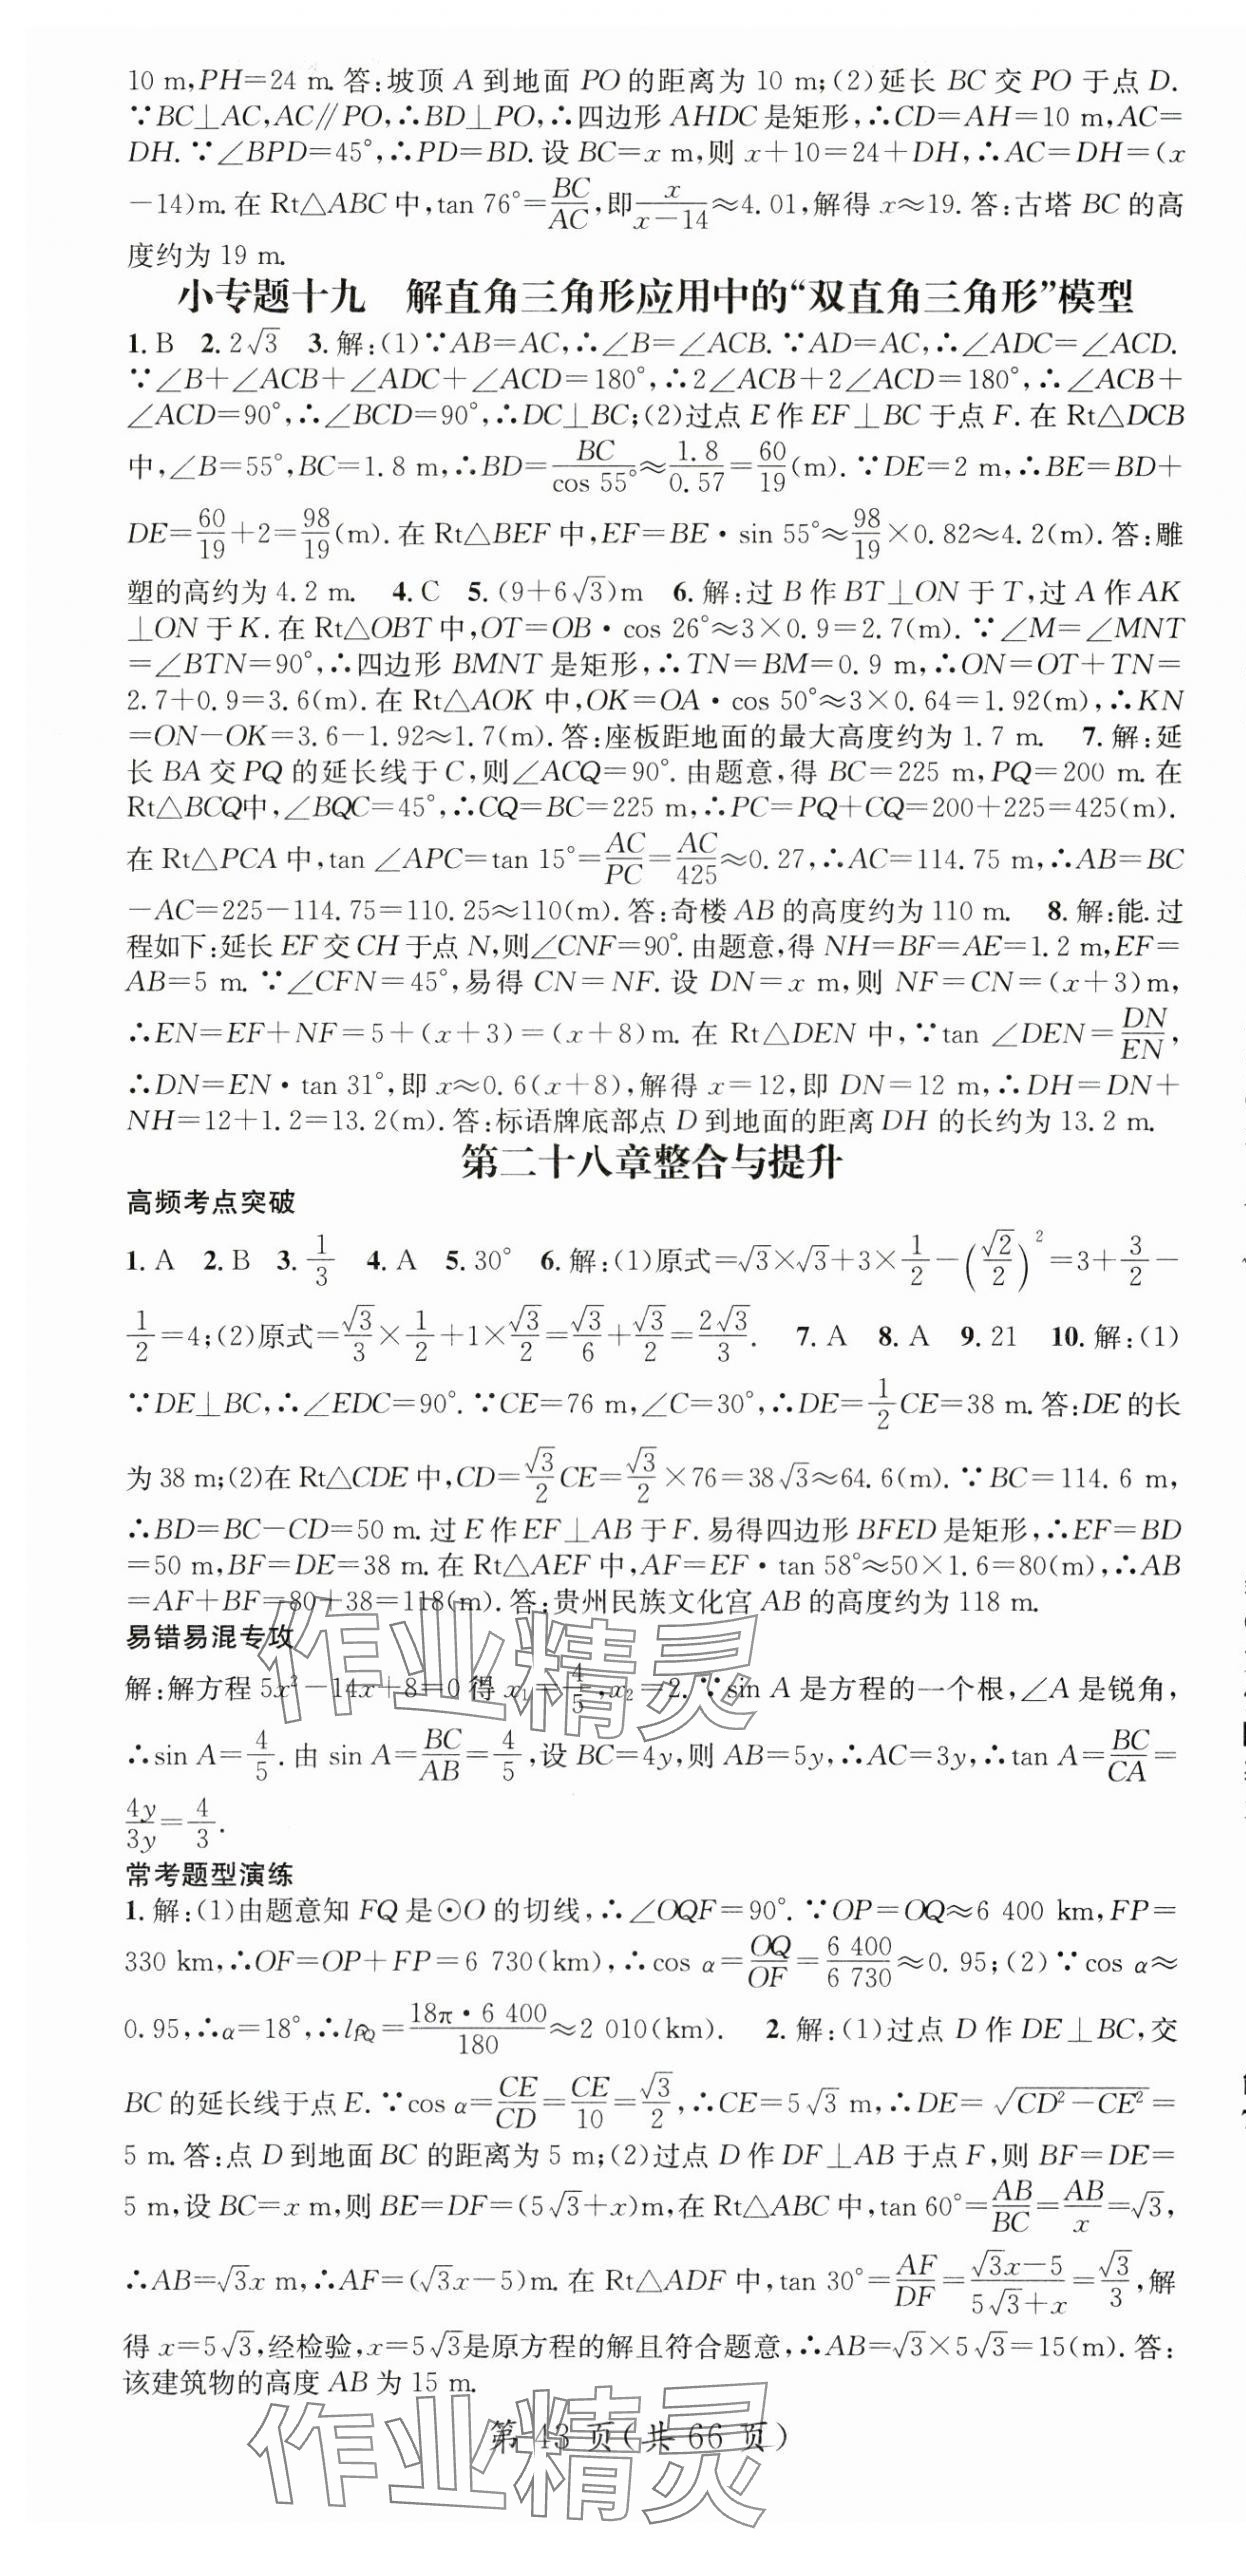 10 m,PH=24 m.答:坡顶 A 到地面 PO 的距离为 10 m;(2)延长 BC 交 PO 于点 D.
∵BC⊥AC,AC∥PO,∴BD⊥PO,∴四边形 AHDC 是矩形,∴CD=AH=10 m,AC=
DH.∵∠BPD=45°,∴PD=BD.设 BC=x m,则 x+10=24+DH,∴AC=DH=(x
-14)m.在 Rt△ABC 中,tan 76°=BC/AC,即x/(x-14)≈4.01,解得 x≈19.答:古塔 BC 的高
度约为 19 m.
小专题十九 解直角三角形应用中的“双直角三角形”模型
1.B 2.2√3 3.解:(1)∵AB=AC,∴∠B=∠ACB.∵AD=AC,∴∠ADC=∠ACD.
∵∠B+∠ACB+∠ADC+∠ACD=180°,∴2∠ACB+2∠ACD=180°,∴∠ACB+
∠ACD=90°,∴∠BCD=90°,∴DC⊥BC;(2)过点 E 作 EF⊥BC 于点 F.在 Rt△DCB
中,∠B=55°,BC=1.8 m,∴BD=BC/cos 55°≈1.8/0.57=60/19(m).∵DE=2 m,∴BE=BD+
DE=60/19+2=98/19(m).在 Rt△BEF 中,EF=BE·sin 55°≈98/19×0.82≈4.2(m).答:雕
塑的高约为 4.2 m. 4.C 5.(9+6√3)m 6.解:过 B 作 BT⊥ON 于 T,过 A 作 AK
⊥ON 于 K.在 Rt△OBT 中,OT=OB·cos 26°≈3×0.9=2.7(m).∵∠M=∠MNT
=∠BTN=90°,∴四边形 BMNT 是矩形,∴TN=BM=0.9 m,∴ON=OT+TN=
2.7+0.9=3.6(m).在 Rt△AOK 中,OK=OA·cos 50°≈3×0.64=1.92(m),∴KN
=ON-OK=3.6-1.92≈1.7(m).答:座板距地面的最大高度约为 1.7 m. 7.解:延
长 BA 交 PQ 的延长线于 C,则∠ACQ=90°.由题意,得 BC=225 m,PQ=200 m.在
Rt△BCQ中,∠BQC=45°,∴CQ=BC=225 m,∴PC=PQ+CQ=200+225=425(m).
在 Rt△PCA 中,tan ∠APC=tan 15°=AC/PC=AC/425≈0.27,∴AC=114.75 m,∴AB=BC
-AC=225-114.75=110.25≈110(m).答:奇楼 AB 的高度约为 110 m. 8.解:能.过
程如下:延长 EF 交 CH 于点 N,则∠CNF=90°.由题意,得 NH=BF=AE=1.2 m,EF=
AB=5 m.∵∠CFN=45°,易得 CN=NF.设 DN=x m,则 NF=CN=(x+3)m,
∴EN=EF+NF=5+(x+3)=(x+8)m.在 Rt△DEN 中,∵tan ∠DEN=DN/EN,
∴DN=EN·tan 31°,即 x≈0.6(x+8),解得 x=12,即 DN=12 m,∴DH=DN+
NH=12+1.2=13.2(m).答:标语牌底部点 D 到地面的距离 DH 的长约为 13.2 m.
第二十八章整合与提升
高频考点突破
1.A 2.B 3.1/3 4.A 5.30° 6.解:(1)原式=√3×√3+3×1/2-(√2/2)²=3+3/2-
1/2=4;(2)原式=√3/3×1/2+1×√3/2=√3/6+√3/2=2√3/3. 7.A 8.A 9.21 10.解:(1)
∵DE⊥BC,∴∠EDC=90°.∵CE=76 m,∠C=30°,∴DE=1/2CE=38 m.答:DE 的长
为 38 m;(2)在 Rt△CDE 中,CD=√3/2CE=√3/2×76=38√3≈64.6(m).∵BC=114.6 m,
∴BD=BC-CD=50 m.过 E 作 EF⊥AB 于 F.易得四边形 BFED 是矩形,∴EF=BD
=50 m,BF=DE=38 m.在 Rt△AEF 中,AF=EF·tan 58°≈50×1.6=80(m),∴AB
=AF+BF=80+38=118(m).答:贵州民族文化宫 AB 的高度约为 118 m.
易错易混专攻
解:解方程 5x²-14x+8=0 得 x₁=4/5,x₂=2.∵sin A 是方程的一个根,∠A 是锐角,
∴sin A=4/5.由 sin A=BC/AB=4/5,设 BC=4y,则 AB=5y,∴AC=3y,∴tan A=BC/CA=
4y/3y=4/3.
常考题型演练
1.解:(1)由题意知 FQ 是⊙O 的切线,∴∠OQF=90°.∵OP=OQ≈6 400 km,FP=
330 km,∴OF=OP+FP=6 730(km),∴cos α=OQ/OF=6 400/6 730≈0.95;(2)∵cos α≈
0.95,∴α=18°,∴l⌒PQ=18π·6 400/180≈2 010(km). 2.解:(1)过点 D 作 DE⊥BC,交
BC 的延长线于点 E.∵cos α=CE/CD=CE/10=√3/2,∴CE=5√3 m,∴DE=√(CD²-CE²)=
5 m.答:点 D 到地面 BC 的距离为 5 m;(2)过点 D 作 DF⊥AB 于点 F,则 BF=DE=
5 m,设 BC=x m,则 BE=DF=(5√3+x)m,在 Rt△ABC 中,tan 60°=AB/BC=AB/x=√3,
∴AB=√3x m,∴AF=(√3x-5)m.在 Rt△ADF 中,tan 30°=AF/DF=(√3x-5)/(5√3+x)=√3/3,解
得 x=5√3,经检验,x=5√3是原方程的解且符合题意,∴AB=√3×5√3=15(m).答:
该建筑物的高度 AB 为 15 m.
第 43 页(共 66 页)
作业精灵
作业精灵